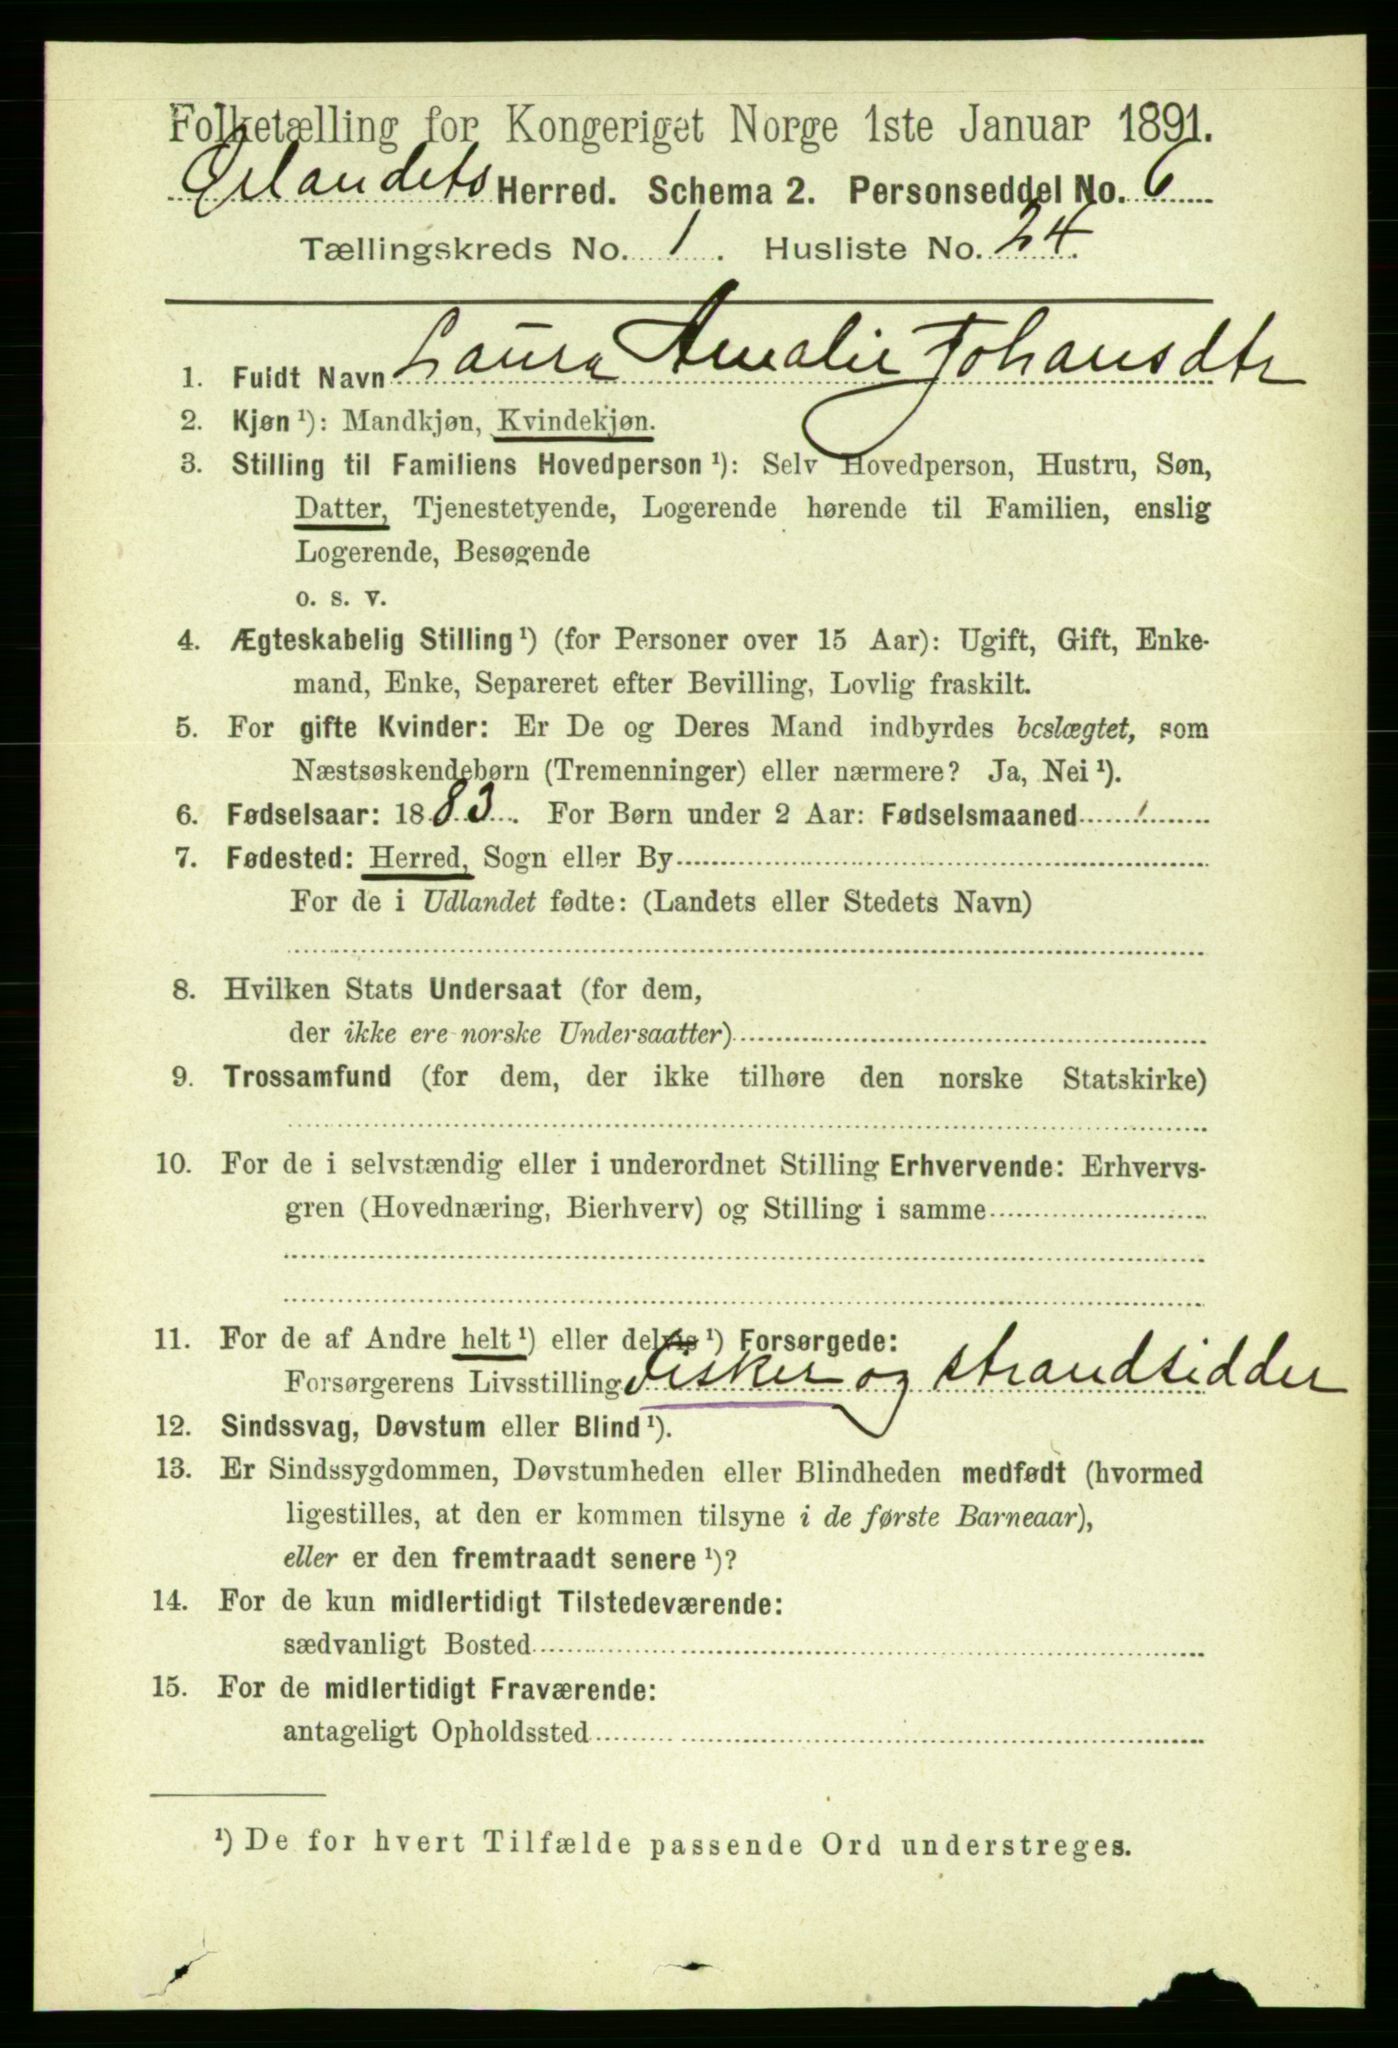 Folketælling for Kongeriget Norge 1ste Januar 1891.
Ørlandets Herred. Schema 2. Personseddel No. 6
Tællingskreds No. 1. Husliste No. 24.
1. Fuldt Navn Laura Amalie Johansdtr
2. Kjøn ¹): Mandkjøn, Kvindekjøn.
3. Stilling til Familiens Hovedperson ¹): Selv Hovedperson, Hustru, Søn,
Datter, Tjenestetyende, Logerende hørende til Familien, enslig
Logerende, Besøgende
o. s. v.
4. Ægteskabelig Stilling ¹) (for Personer over 15 Aar): Ugift, Gift, Enke-
mand, Enke, Separeret efter Bevilling, Lovlig fraskilt.
5. For gifte Kvinder: Er De og Deres Mand indbyrdes beslægtet, som
Næstsøskendebørn (Tremenninger) eller nærmere? Ja, Nei ¹).
6. Fødselsaar: 1883. For Børn under 2 Aar: Fødselsmaaned
7. Fødested: Herred, Sogn eller By
For de i Udlandet fødte: (Landets eller Stedets Navn)
8. Hvilken Stats Undersaat (for dem,
der ikke ere norske Undersaatter)
9. Trossamfund (for dem, der ikke tilhøre den norske Statskirke)
10. For de i selvstændig eller i underordnet Stilling Erhvervende: Erhvervs-
gren (Hovednæring, Bierhverv) og Stilling i samme
11. For de af Andre helt ¹) eller delvis ¹) Forsørgede:
Forsørgerens Livsstilling Fisker og Strandsidder
12. Sindssvag, Døvstum eller Blind ¹).
13. Er Sindssygdommen, Døvstumheden eller Blindheden medfødt (hvormed
ligestilles, at den er kommen tilsyne i de første Barneaar),
eller er den fremtraadt senere ¹)?
14. For de kun midlertidigt Tilstedeværende:
sædvanligt Bosted
15. For de midlertidigt Fraværende:
antageligt Opholdssted
¹) De for hvert Tilfælde passende Ord understreges.